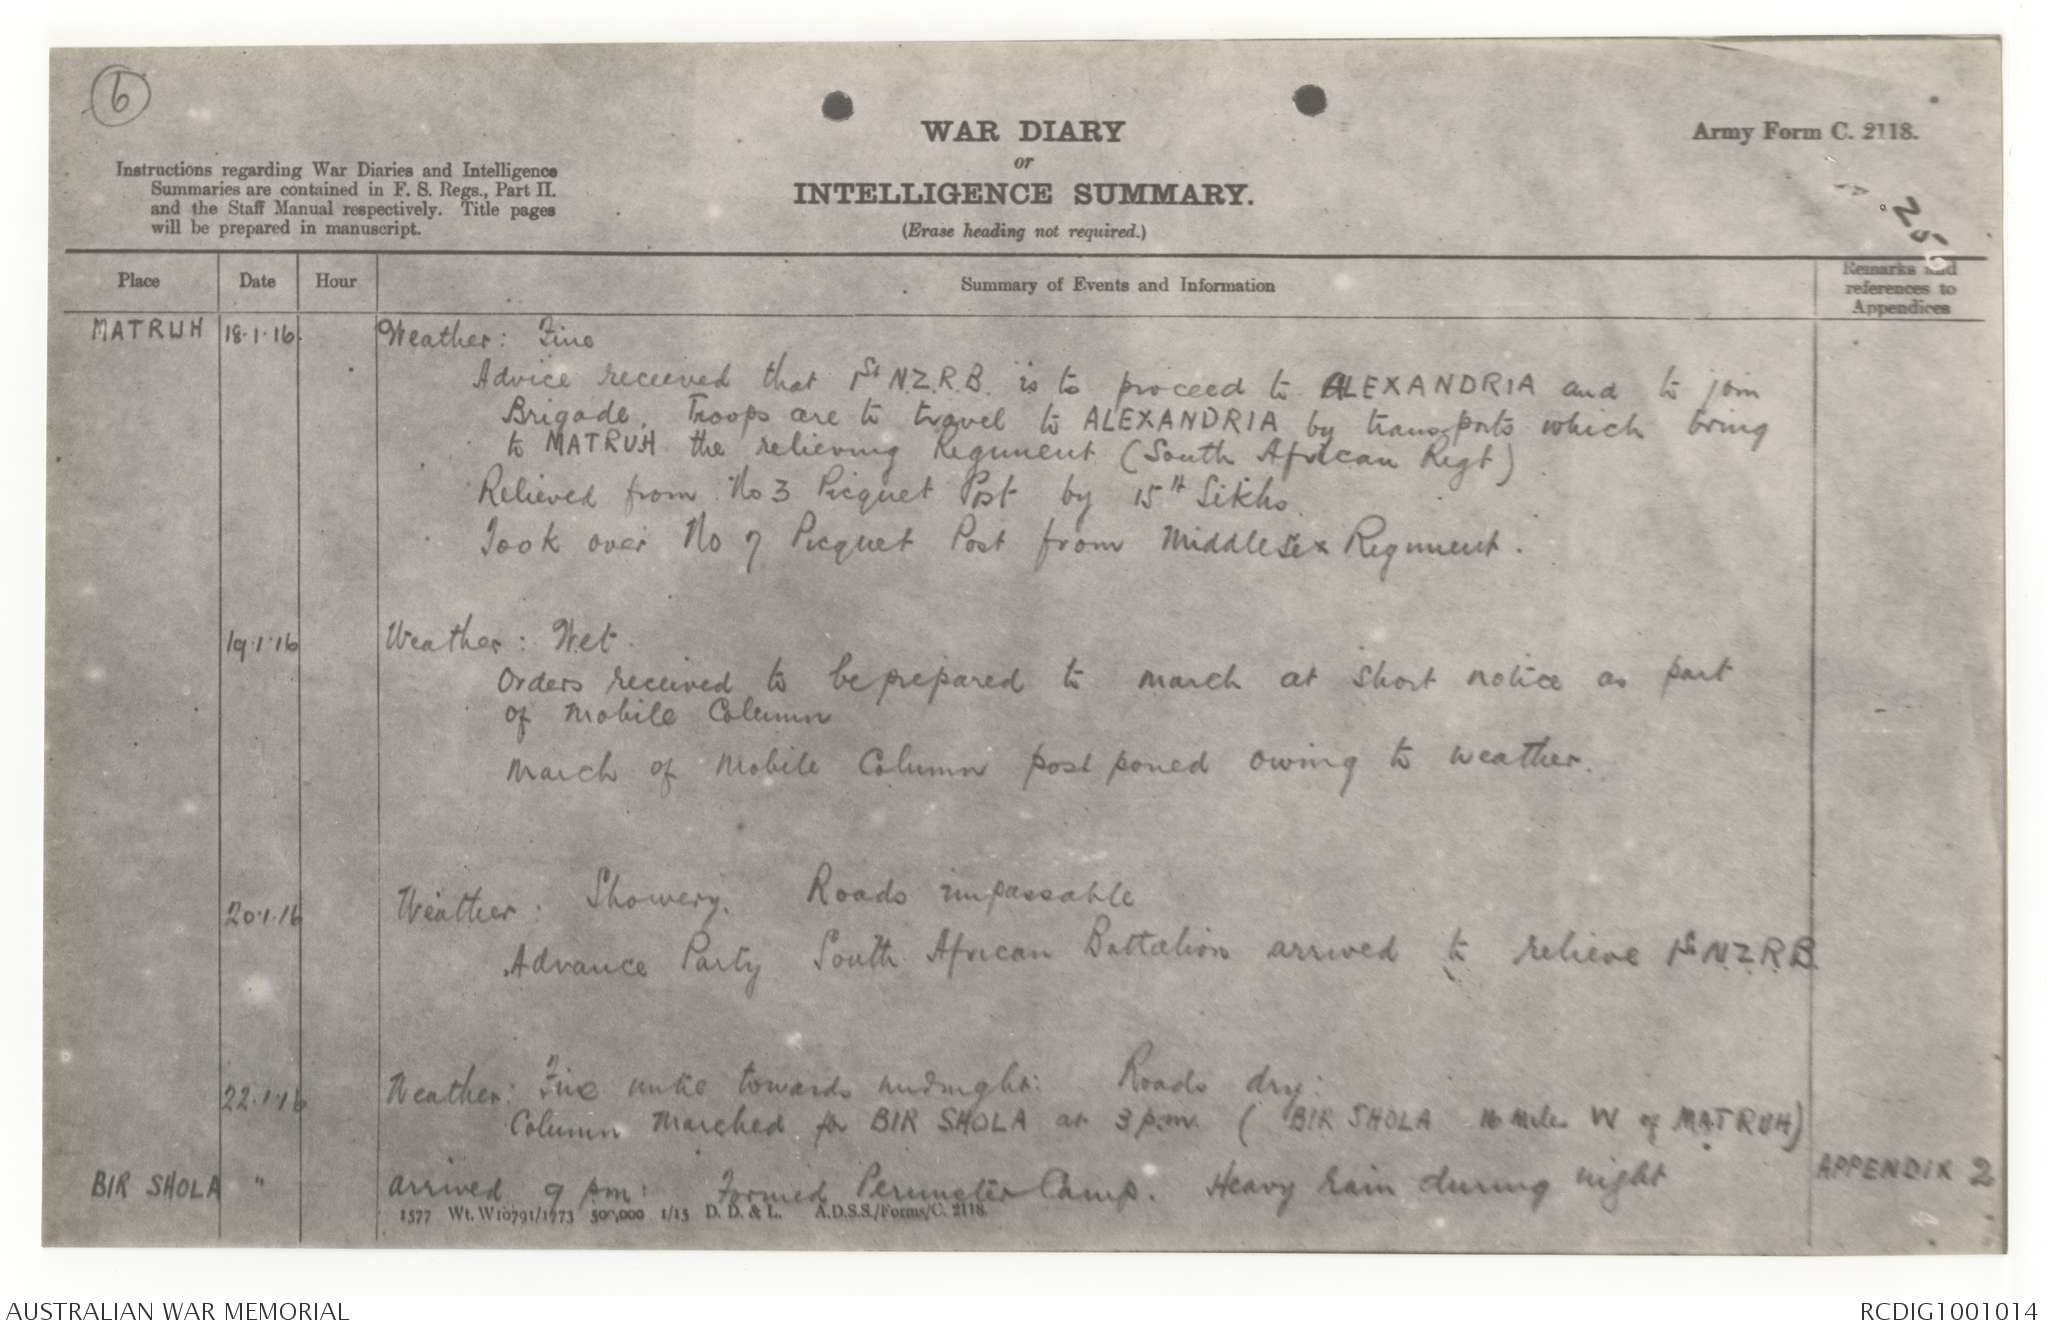 6
WAR DIARY
or
INTELLIGENCE SUMMARY.
(Erase heading not required.)
Army Form C. 2118.
Instructions regarding War Diaries and Intelligence
Summaries are contained in F. S. Regs., Part II.
and the Staff Manual respectively. Title pages
will be prepared in manuscript.
Place Date Hour Summary of Events and Information Remarks and references to Appendices
MATRUH 18.1.16. Weather: Fine
Advice received that 1st N.Z.R.B. is to proceed to ALEXANDRIA and to join
Brigade. Troops are to travel to ALEXANDRIA by transports which bring
to MATRUH the relieving Regiment (South African Regt)
Relieved from No 3 Picquet Post by 15th Sikhs.
Took over No 7 Picquet Post from Middlesex Regiment.
19.1.16 Weather: Wet.
Orders received to be prepared to march at short notice as part
of Mobile Column
March of Mobile Column postponed owing to weather.
20.1.16 Weather: Showery. Roads impassable
Advance Party South African Battalion arrived to relieve 1st N.Z.R.B.
22.1.16 Weather: Fine until towards midnight: Roads dry:
Column marched for BIR SHOLA at 3 p.m. (BIR SHOLA 16 miles W of MATRUH)
BIR SHOLA " arrived 9 pm: Formed Perimeter Camp. Heavy rain during night APPENDIX 2
1577 Wt. W10791/1773 500,000 1/15 D. D. & L. A.D.S.S./Forms/C. 2118.
AUSTRALIAN WAR MEMORIAL
RCDIG1001014